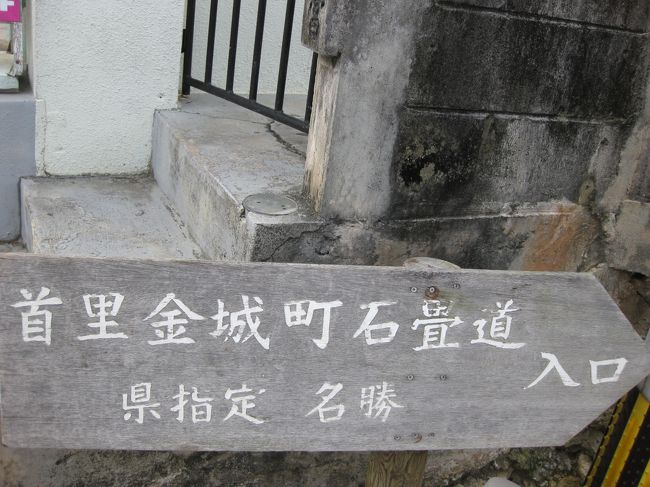 首里金城町石畳道
入口
県指定 名勝